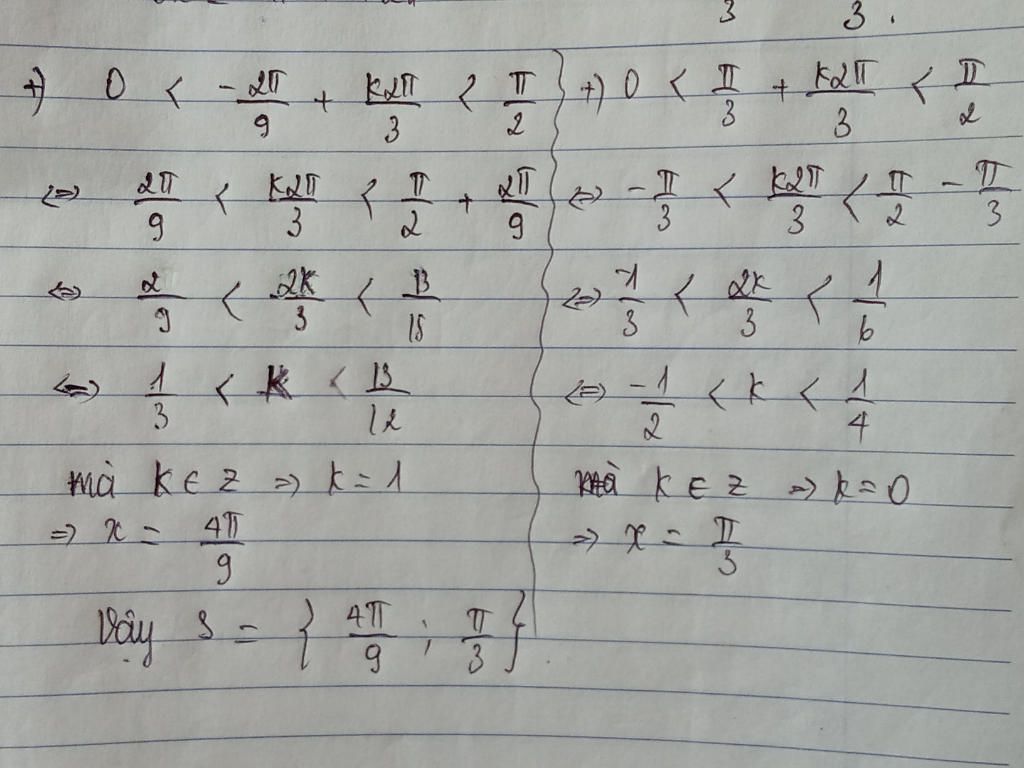 3 3 .
+) 0 < -2π/9 + k2π/3 < π/2
⇔ 2π/9 < k2π/3 < π/2 + 2π/9
⇔ 2/9 < 2k/3 < 13/18
⇔ 1/3 < k < 13/12
mà k ∈ Z ⇒ k = 1
⇒ x = 4π/9
+) 0 < π/3 + k2π/3 < π/2
⇔ -π/3 < k2π/3 < π/2 - π/3
⇔ -1/3 < 2k/3 < 1/6
⇔ -1/2 < k < 1/4
mà k ∈ Z ⇒ k = 0
⇒ x = π/3
Vậy S = { 4π/9 ; π/3 }